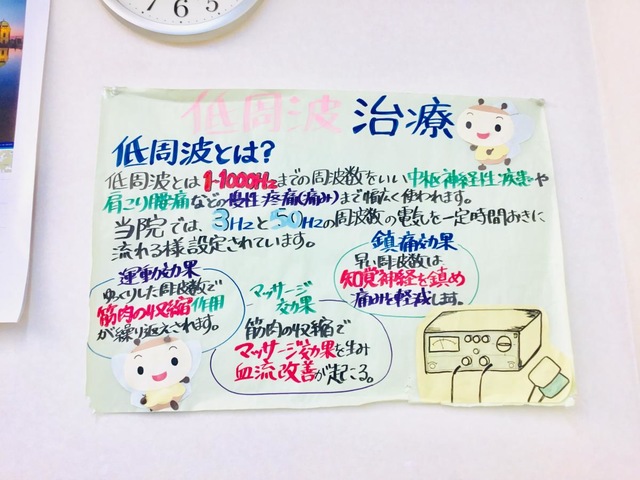 7 6 5
低周波 治療
低周波とは?
低周波とは1~1000Hzまでの周波数をいい中枢神経性疾患や
肩こり腰痛などの慢性疼痛(痛み)まで幅広く使われます。
当院では、3Hzと50Hzの周波数の電気を一定時間おきに
流れる様設定されています。
運動効果
ゆっくりした周波数で
筋肉の収縮作用
が繰り返えされます。
マッサージ
効果
筋肉の収縮で
マッサージ効果を生み
血流改善が起こる。
鎮痛効果
早い周波数は
知覚神経を鎮め
痛みを軽減します。